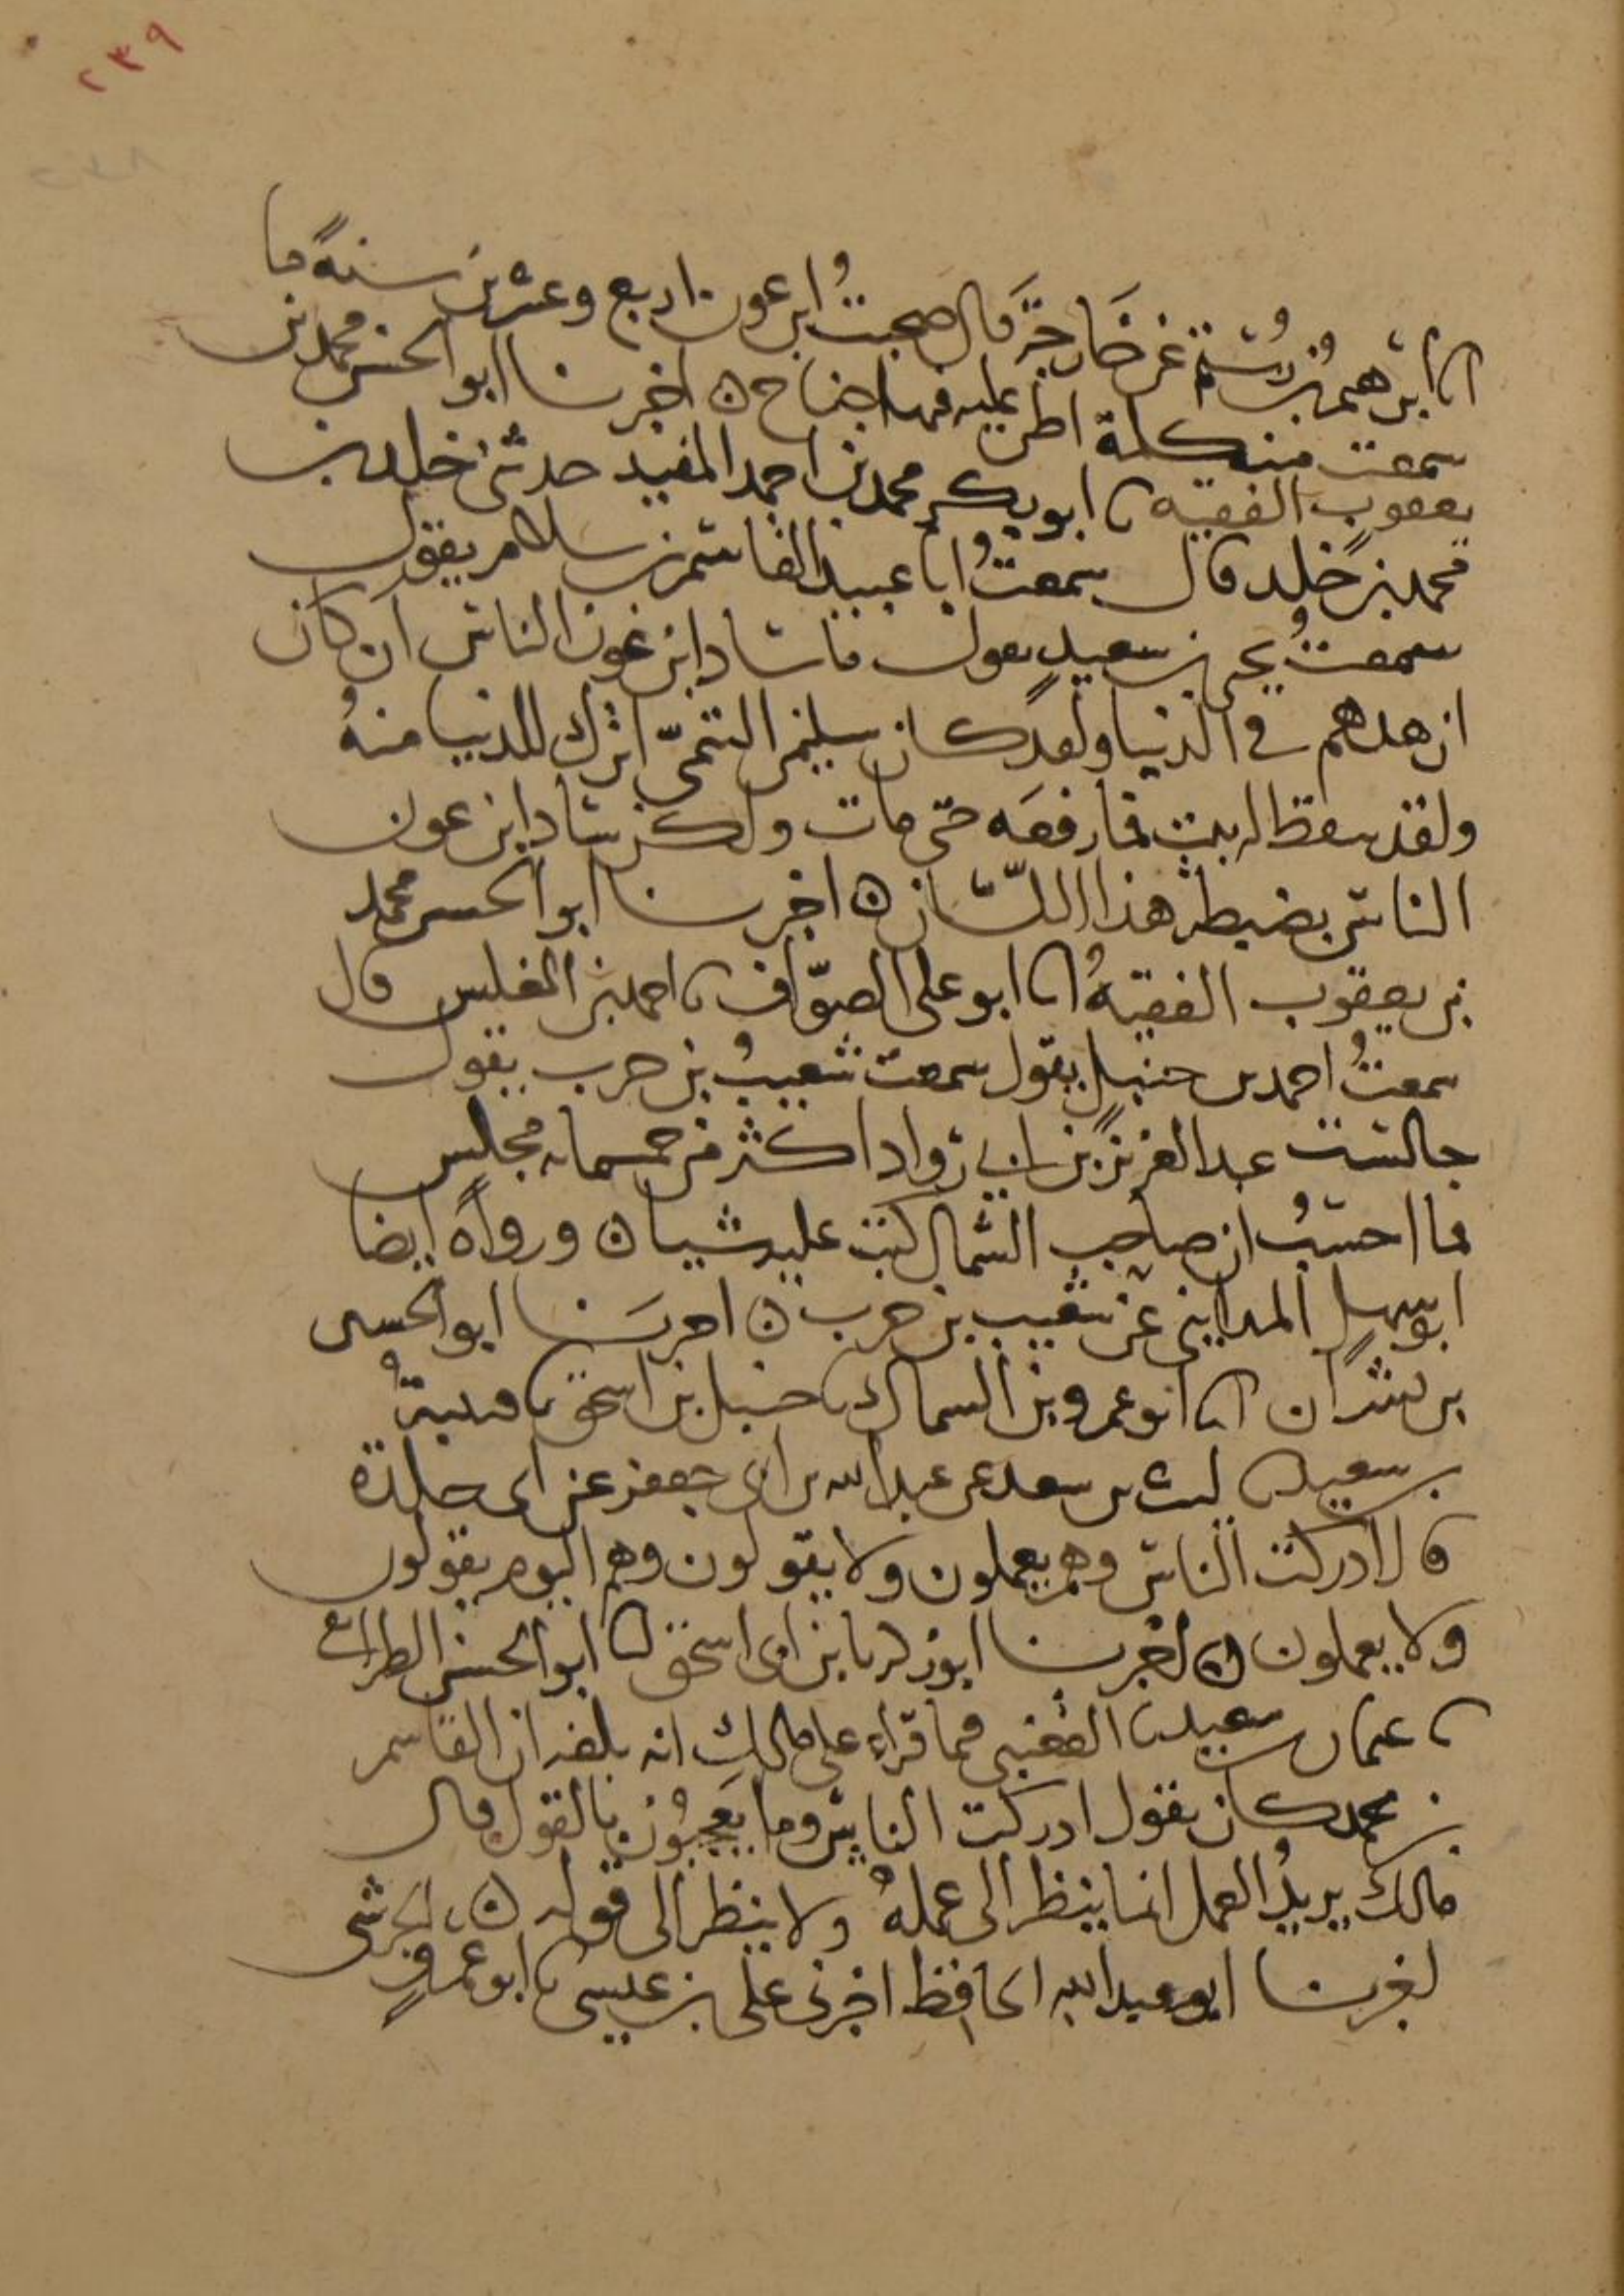 ٢٣٩
٢٣٨
انا ابرهيم بن رستم عن خارجة قال صحبتُ ابن عون اربع وعشرين سنةً ما
سمعت منه كلمة اظن عليه فيها جناح ه اخبرنا ابو الحسن محمد بن
يعقوب الفقيه نا ابو بكر محمد بن احمد المفيد حدثنى خلد بن
محمد بن خلد قال سمعتُ ابا عبيد القاسم بن سلام يقول
سمعتُ يحيى بن سعيدٍ يقول ما ساد ابن عون الناس ان كان
ازهدهم في الدنيا ولقد كان سليمن التيمىّ اترك للدنيا منهُ
ولقد سقط له بيت فما رفعَه حتى مات ولكن ساد ابن عون
الناس بضبطه هذا اللسّان ه اخبرنا ابو الحسن محمد
بن يعقوب الفقيهُ انا ابو على الصوّاف نا احمد بن المغلس قال
سمعتُ احمد بن حنبل يقول سمعت شعيبُ بن حرب يقول
جالست عبد العزيز بن ابي رواد اكثر من خمسمايه مجلس
فما احسبُ ان صاحب الشمال كتب عليه شيا ه ورواه ايضا
ابو سهل المدايني عن شعيب بن حرب ه اخبرنا ابو الحسين
بن بشران انا ابو عمرو بن السماك نا حنبل بن اسحق نا قتيبةُ
بن سعيد نا ليث بن سعد عن عبد الله بن ابى جعفر عن ابى جلدة
قال ادركت الناس وهم يعملون ولا يقولون وهم اليوم يقولون
ولا يعملون ه اخبرنا ابو زكريا بن ابى اسحق انا ابو الحسن الطرائفى
نا عثمان بن سعيد نا القعنبي فيما قراء على مالك انه بلغه ان القاسم
بن محمد كان يقول ادركت الناس وما يعجبُون بالقول قال
مالك يريدُ العمل انما ينظر الى عملهُ ولا ينظر الى قوله ه
اخبرنا ابو عبد الله الحافظ اخبرنى على بن عيسى نا ابو عمرو الحرشى